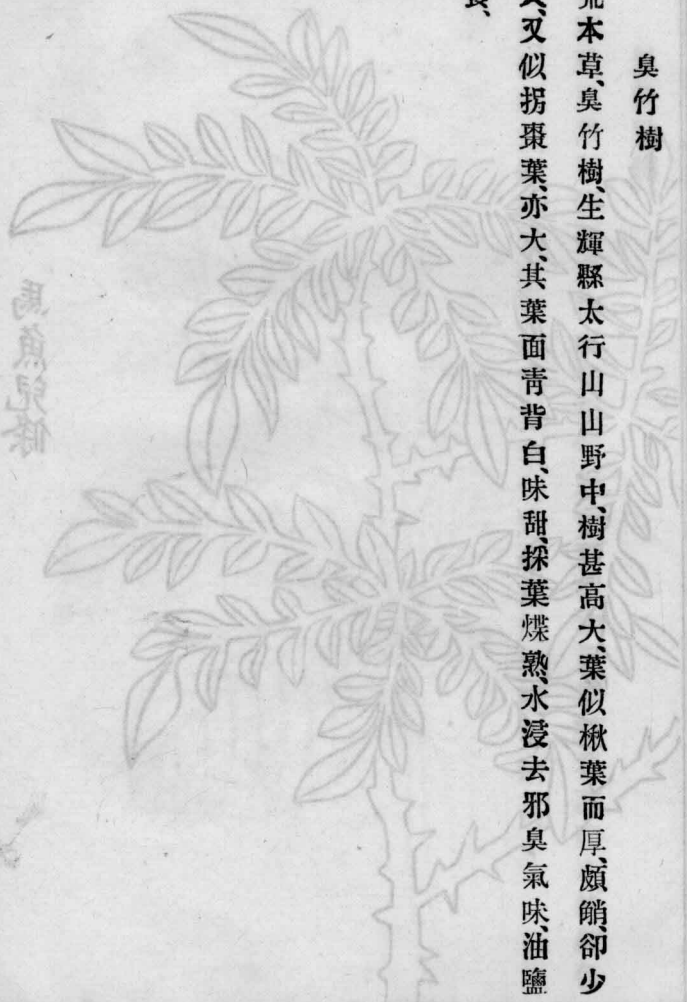 臭竹樹
本草、臭竹樹、生輝縣太行山山野中、樹甚高大、葉似楸葉而厚、頗艄、卻少
又似拐棗葉、亦大、其葉面靑背白、味甜、採葉煠熟、水浸去邪臭氣味、油鹽
馬魚兒條